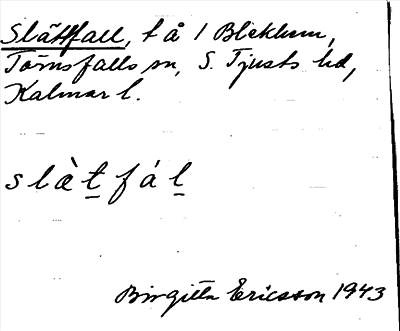 Slättfall, t å 1 Bleklum,
Törnsfalls sn, S. Tjusts hd,
Kalmar l.
slàt̲fál̲
Birgitta Ericsson 1943